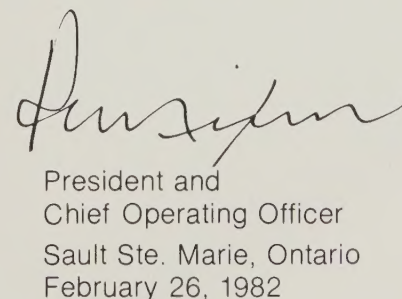 President and
Chief Operating Officer
Sault Ste. Marie, Ontario
February 26, 1982